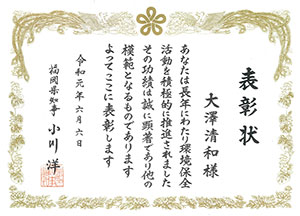 表彰状
大澤清和様
あなたは長年にわたり環境保全
活動を積極的に推進されました
その功績は誠に顕著であり他の
模範となるものであります
よってここに表彰します
令和元年六月六日
福岡県知事 小川洋